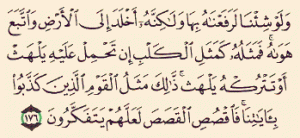 وَلَوْ شِئْنَا لَرَفَعْنَٰهُ بِهَا وَلَٰكِنَّهُۥٓ أَخْلَدَ إِلَى ٱلْأَرْضِ وَٱتَّبَعَ
هَوَىٰهُ ۚ فَمَثَلُهُۥ كَمَثَلِ ٱلْكَلْبِ إِن تَحْمِلْ عَلَيْهِ يَلْهَثْ
أَوْ تَتْرُكْهُ يَلْهَث ۚ ذَّٰلِكَ مَثَلُ ٱلْقَوْمِ ٱلَّذِينَ كَذَّبُوا۟
بِـَٔايَٰتِنَا ۚ فَٱقْصُصِ ٱلْقَصَصَ لَعَلَّهُمْ يَتَفَكَّرُونَ ١٧٦